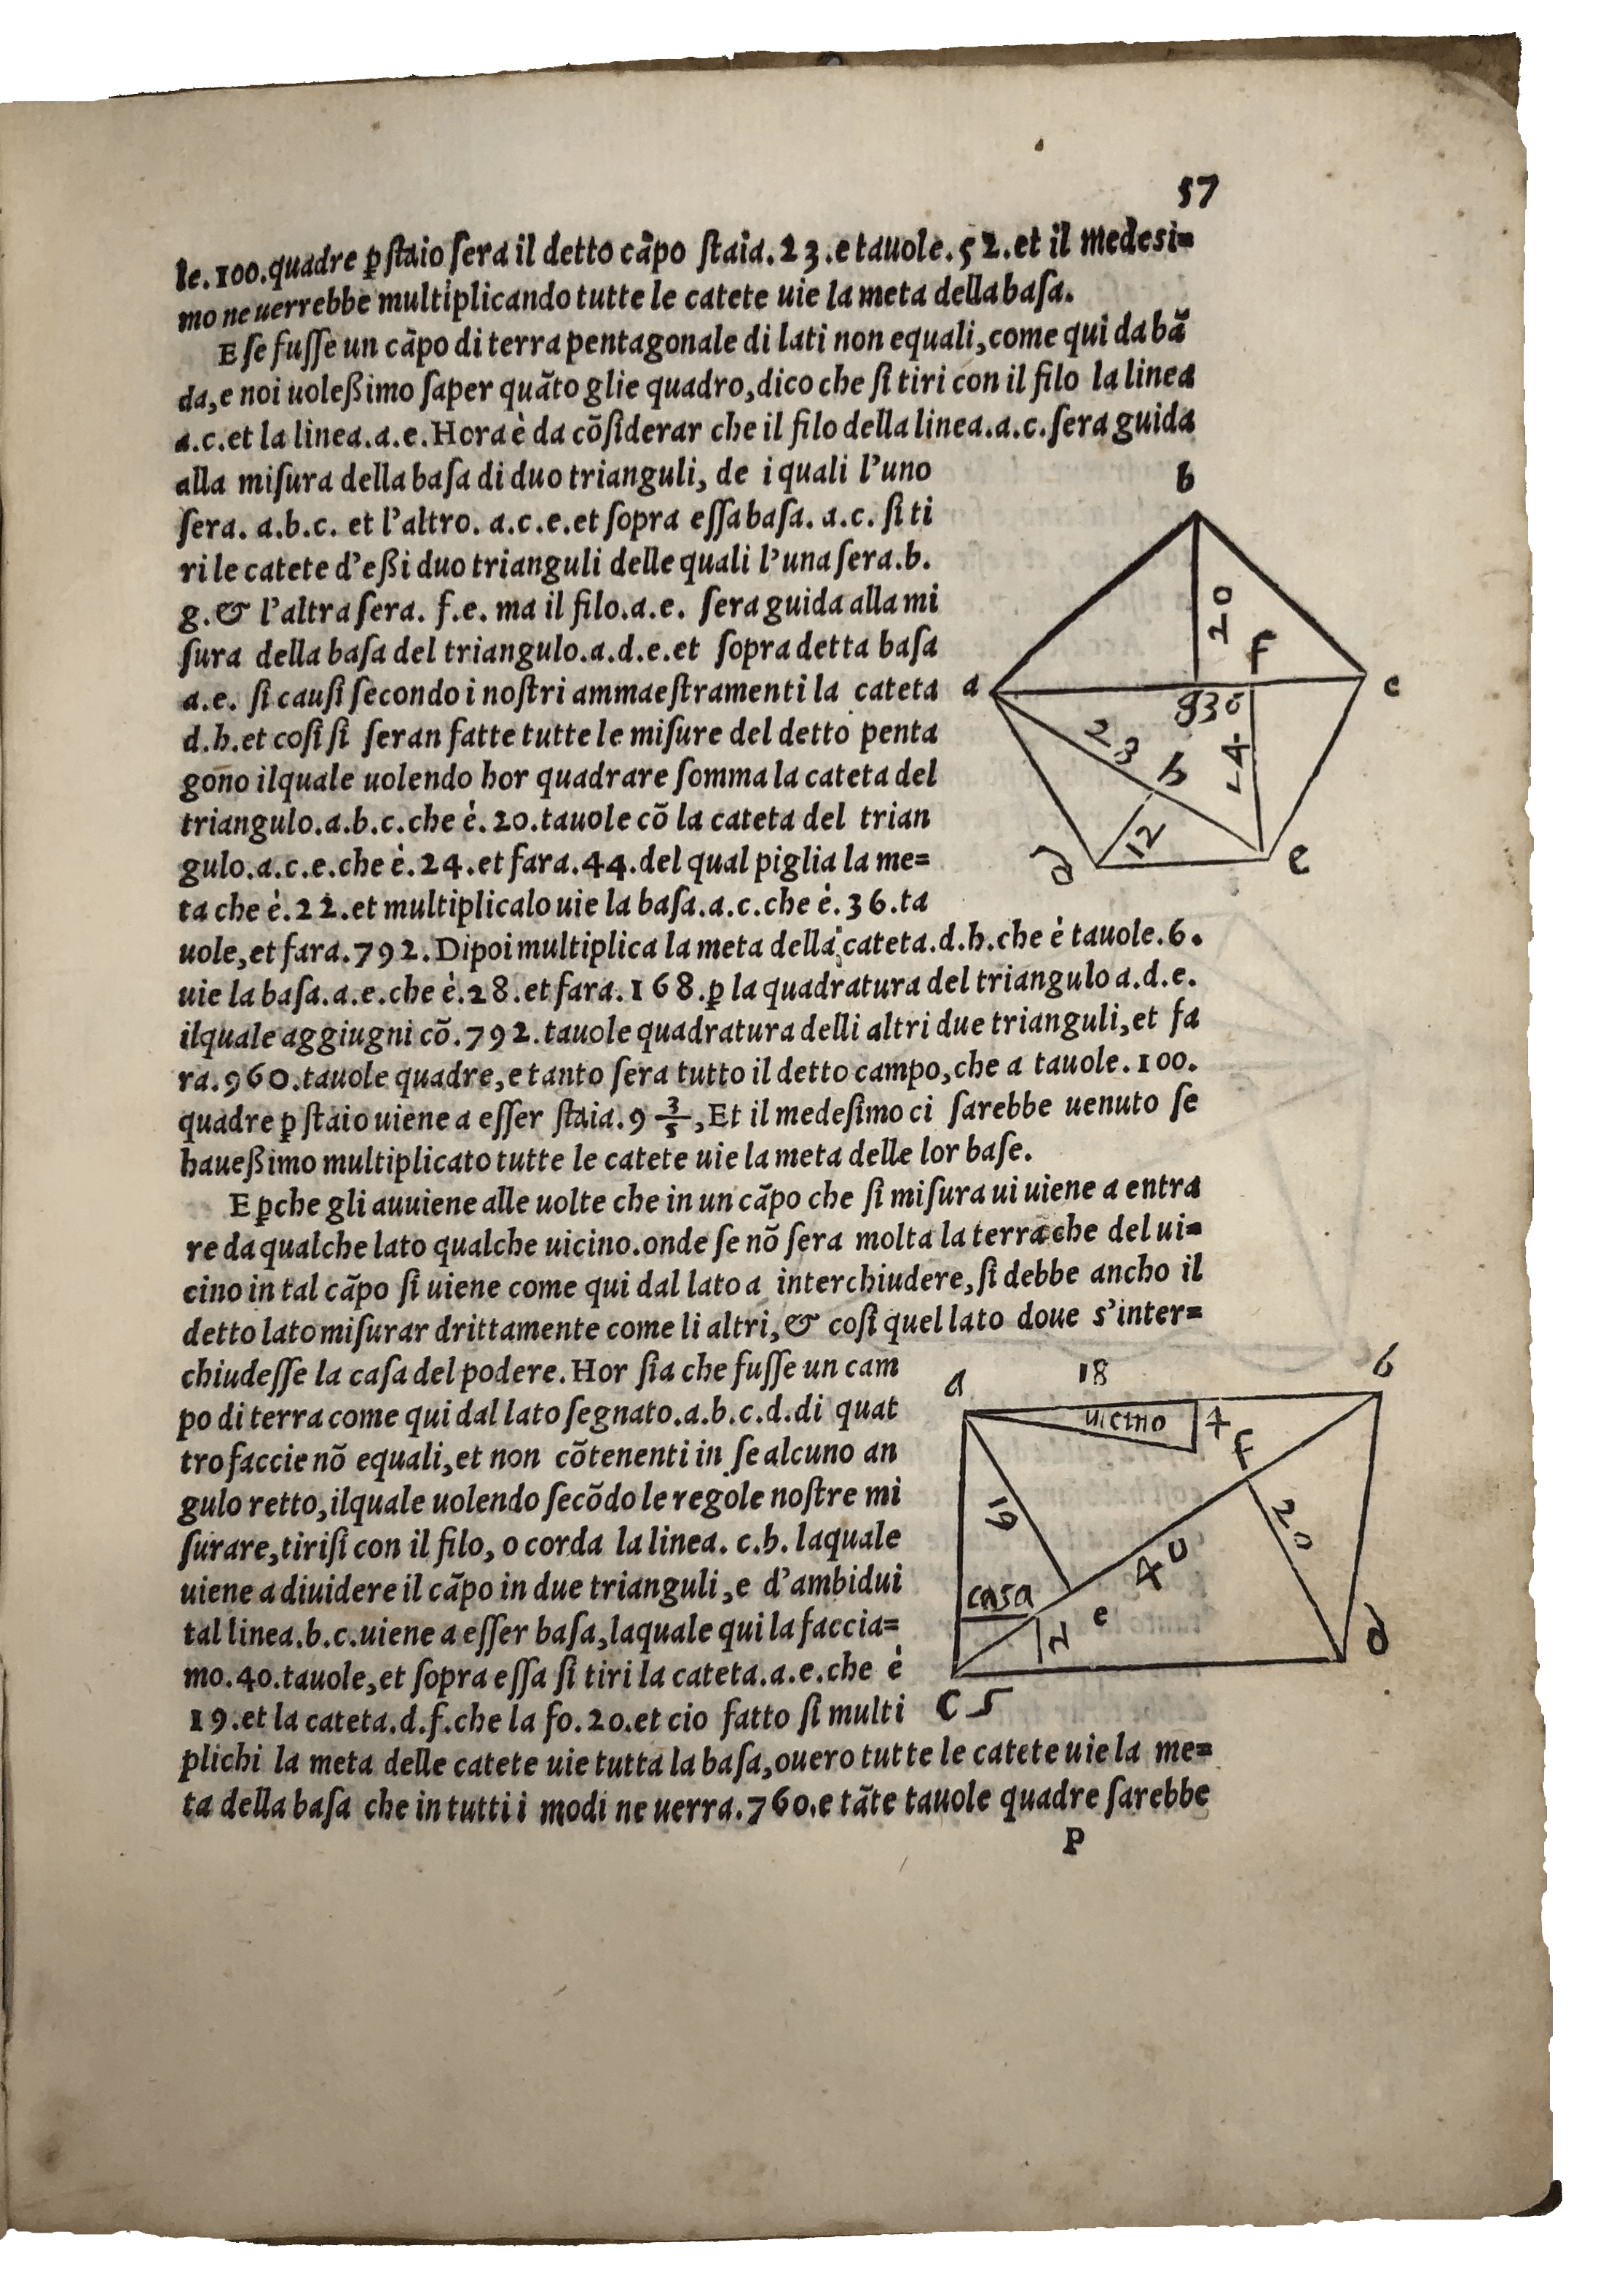 57
le.100.quadre ꝑ ſtaio ſera il detto cãpo ſtaia.23.e tauole.52.et il medesi=
mo ne uerrebbe multiplicando tutte le catete uie la meta della baſa.
E ſe fuſſe un cãpo di terra pentagonale di lati non equali, come qui da bã
da, e noi uoleßimo ſaper quãto glie quadro, dico che ſi tiri con il filo la linea
a.c.et la linea.a.e.Hora è da cõſiderar che il filo della linea.a.c.ſera guida
alla miſura della baſa di duo trianguli, de i quali l'uno
ſera. a.b.c. et l'altro. a.c.e.et ſopra eſſa baſa. a.c. ſi ti
ri le catete d'eßi duo trianguli delle quali l'una ſera.b.
g.& l'altra ſera. f.e. ma il filo.a.e. ſera guida alla mi
ſura della baſa del triangulo.a.d.e.et ſopra detta baſa
a.e. ſi cauſi ſecondo i noſtri ammaeſtramenti la cateta
d.h.et coſi ſi ſeran fatte tutte le miſure del detto penta
gono ilquale uolendo hor quadrare ſomma la cateta del
triangulo.a.b.c.che è.20.tauole cõ la cateta del trian
gulo.a.c.e.che è.24.et fara.44.del qual piglia la me=
ta che è.22.et multiplicalo uie la baſa.a.c.che è.36.ta
uole, et fara.792.Dipoi multiplica la meta della cateta.d.h.che è tauole.6.
uie la baſa.a.e.che è.28.et fara.168.ꝑ la quadratura del triangulo a.d.e.
ilquale aggiugni cõ.792.tauole quadratura delli altri due trianguli, et fa
ra.960.tauole quadre, e tanto ſera tutto il detto campo, che a tauole.100.
quadre ꝑ ſtaio uiene a eſſer ſtaia.9 3/5, Et il medeſimo ci ſarebbe uenuto ſe
haueßimo multiplicato tutte le catete uie la meta delle lor baſe.
E ꝑche gli auuiene alle uolte che in un cãpo che ſi miſura ui uiene a entra
re da qualche lato qualche uicino.onde ſe nõ ſera molta la terra che del ui=
cino in tal cãpo ſi uiene come qui dal lato a interchiudere, ſi debbe ancho il
detto lato miſurar drittamente come li altri, & coſi quel lato doue s'inter=
chiudeſſe la caſa del podere. Hor ſia che fuſſe un cam
po di terra come qui dal lato ſegnato.a.b.c.d.di quat
tro faccie nõ equali, et non cõtenenti in ſe alcuno an
gulo retto, ilquale uolendo ſecõdo le regole noſtre mi
ſurare, tiriſi con il filo, o corda la linea. c.b. laquale
uiene a diuidere il cãpo in due trianguli, e d'ambidui
tal linea.b.c.uiene a eſſer baſa, laquale qui la faccia=
mo.40.tauole, et ſopra eſſa ſi tiri la cateta.a.e.che è
19.et la cateta.d.f.che la fo.20.et cio fatto ſi multi
plichi la meta delle catete uie tutta la baſa, ouero tutte le catete uie la me=
ta della baſa che in tutti i modi ne uerra.760.e tãte tauole quadre ſarebbe
P
b
20
f
a
c
g36
28
h
24
12
d
e
a
18
b
uicino
4
f
19
20
40
casa
e
d
c 5